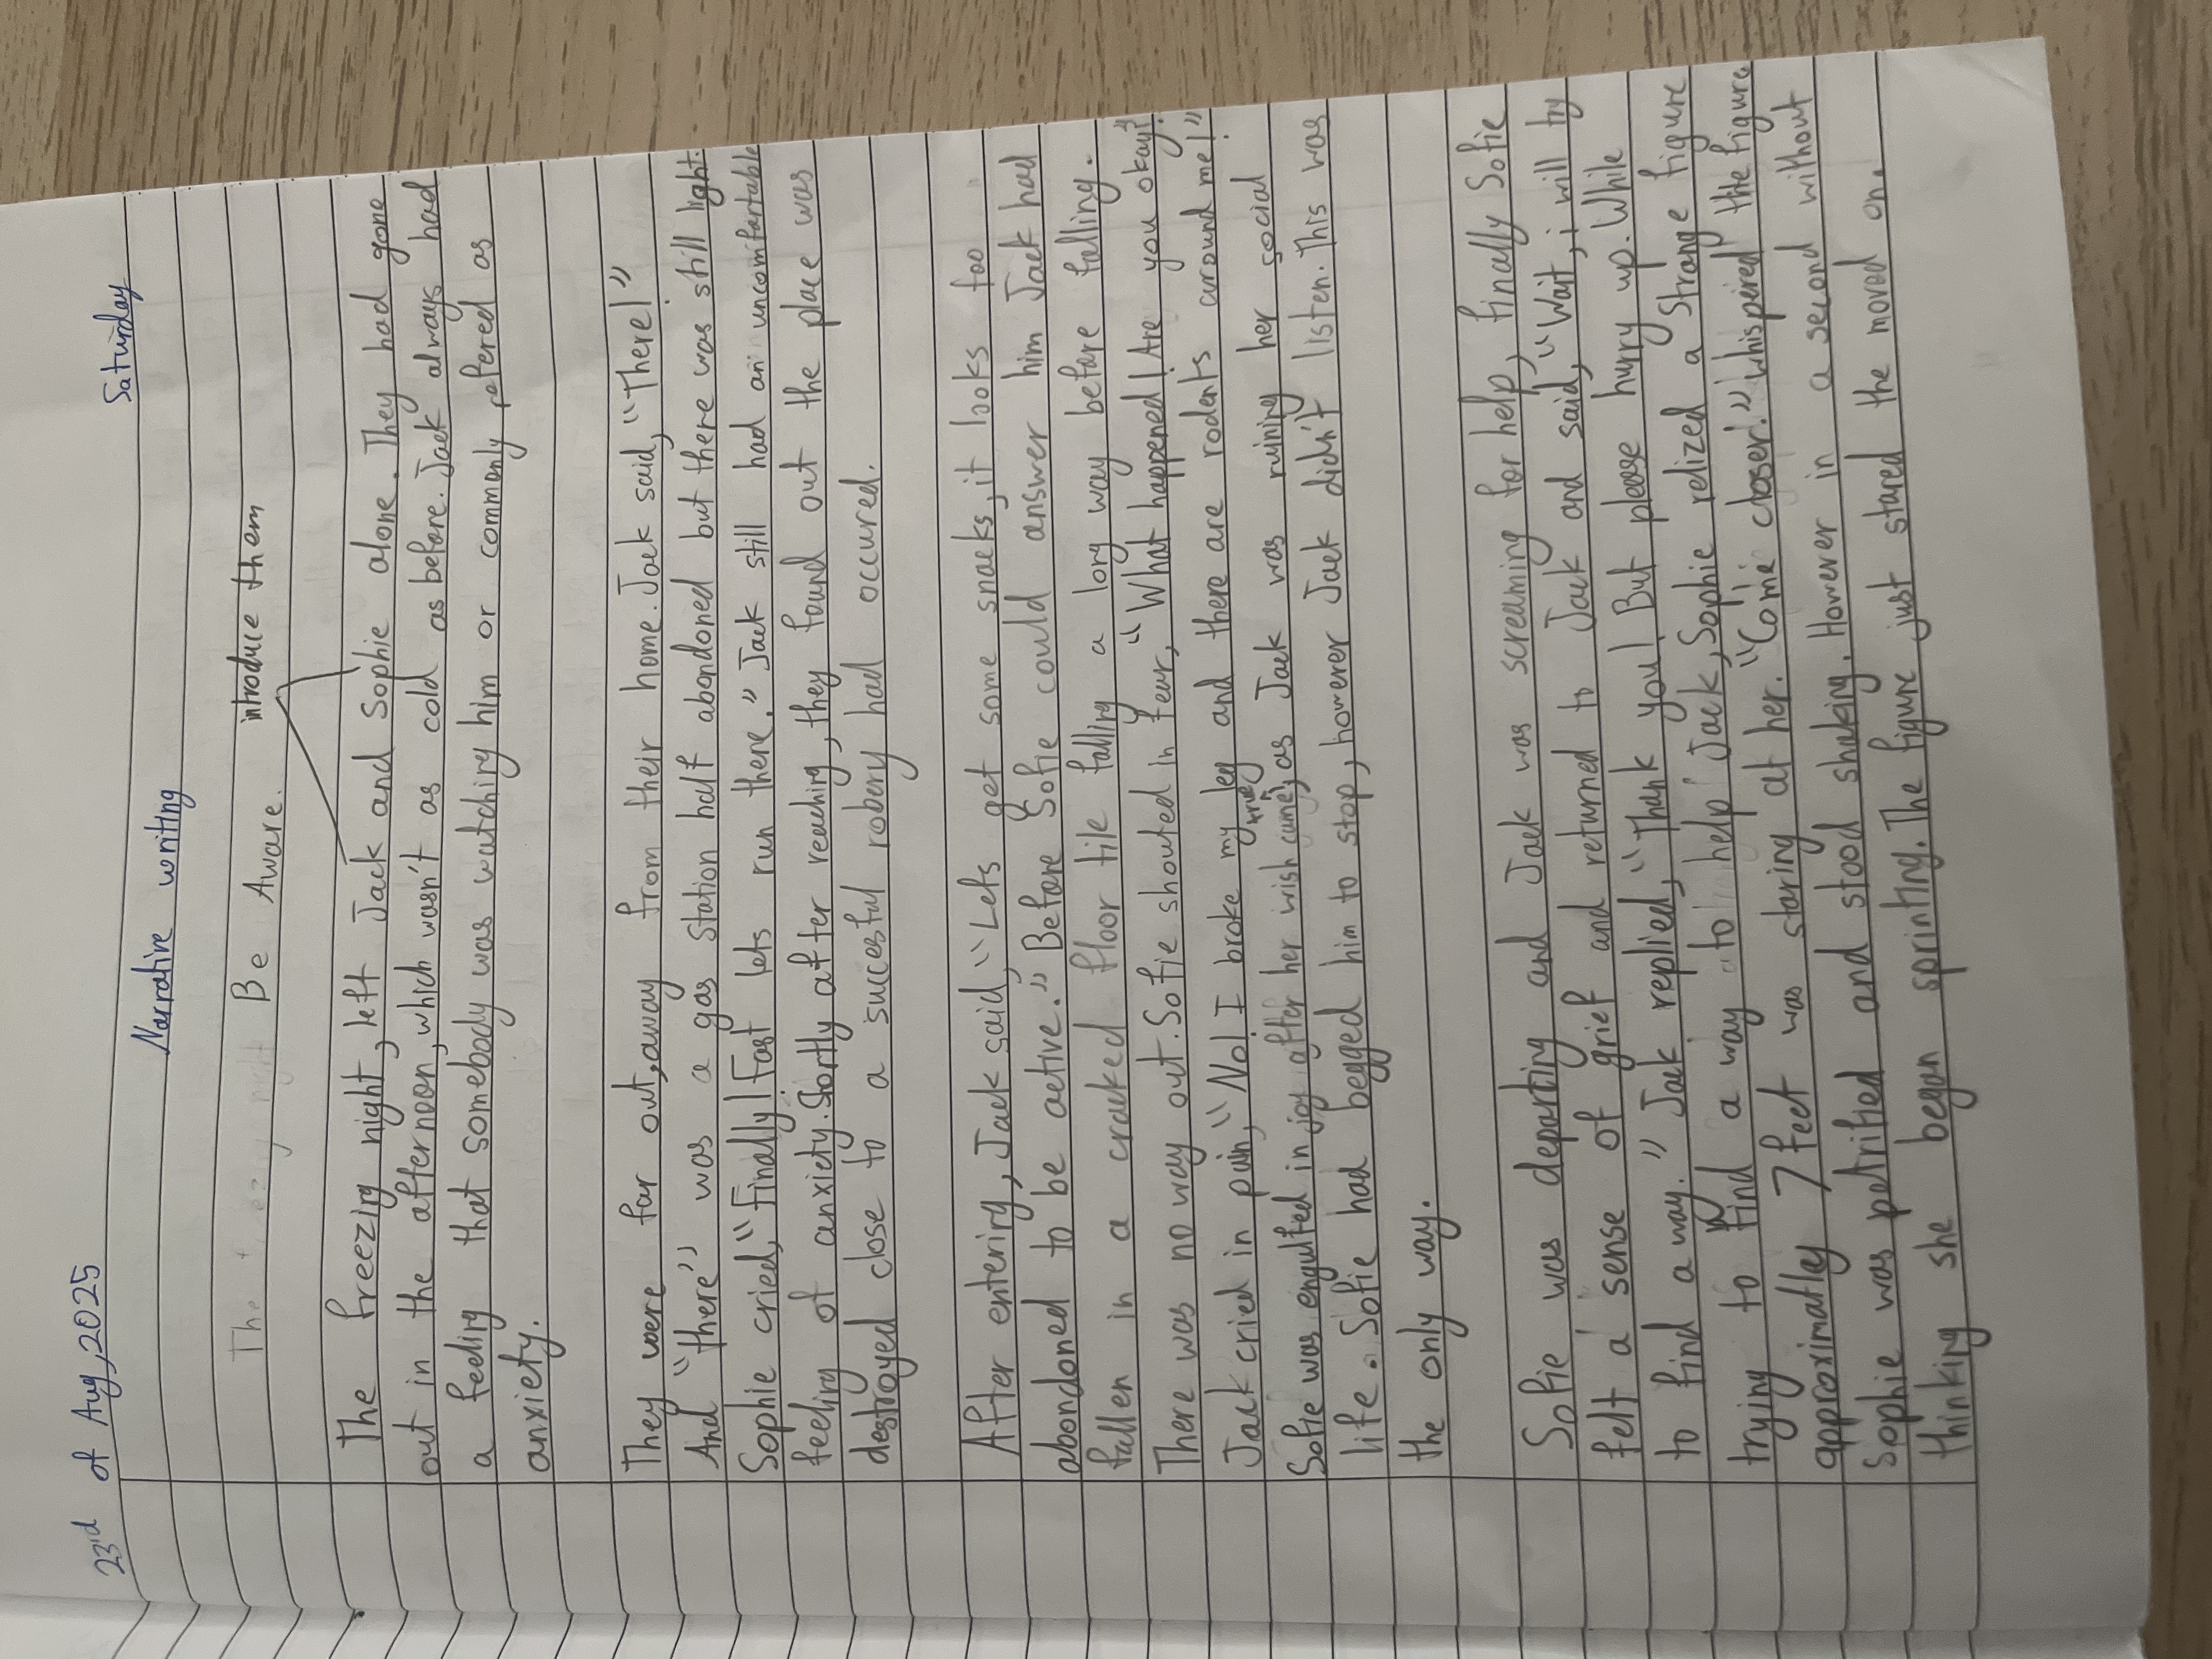 23rd of Aug, 2025 Saturday
Narrative writing
The night Be Aware. introduce them
The freezing night, left Jack and Sophie alone. They had gone
out in the afternoon, which wasn't as cold as before. Jack always had
a feeling that somebody was watching him or commonly refered as
anxiety.
They were far out, away from their home. Jack said, "There!"
And "there" was a gas station half abondoned but there was still light.
Sophie cried, "Finally! Fast lets run there." Jack still had an uncomfartable
feeling of anxiety. Sortly after reaching, they found out the place was
destroyed close to a succesful robery had occured.
After entering, Jack said, "Lets get some snacks, it looks too
abondoned to be active." Before Sofie could answer him Jack had
fallen in a cracked floor tile falling a long way before falling.
There was no way out. Sofie shouted in fear, "What happened! Are you okay?"
Jack cried in pain, "No! I broke my leg and there are rodents around me!"
Sofie was engulfed in joy after her wish came true, as Jack was ruining her social
life. Sofie had begged him to stop, however Jack didn't listen. This was
the only way.
Sofie was departing and Jack was screaming for help, finally Sofie
felt a sense of grief and returned to Jack and said, "Wait, i will try
to find a way." Jack replied, "Thank you! But please hurry up. While
trying to find a way to help Jack, Sophie relized a strange figure
approximatley 7 feet was staring at her. "Come closer!" whispered the figure
Sophie was petrified and stood shaking. However in a second without
thinking she began sprinting. The figure just stared the moved on.